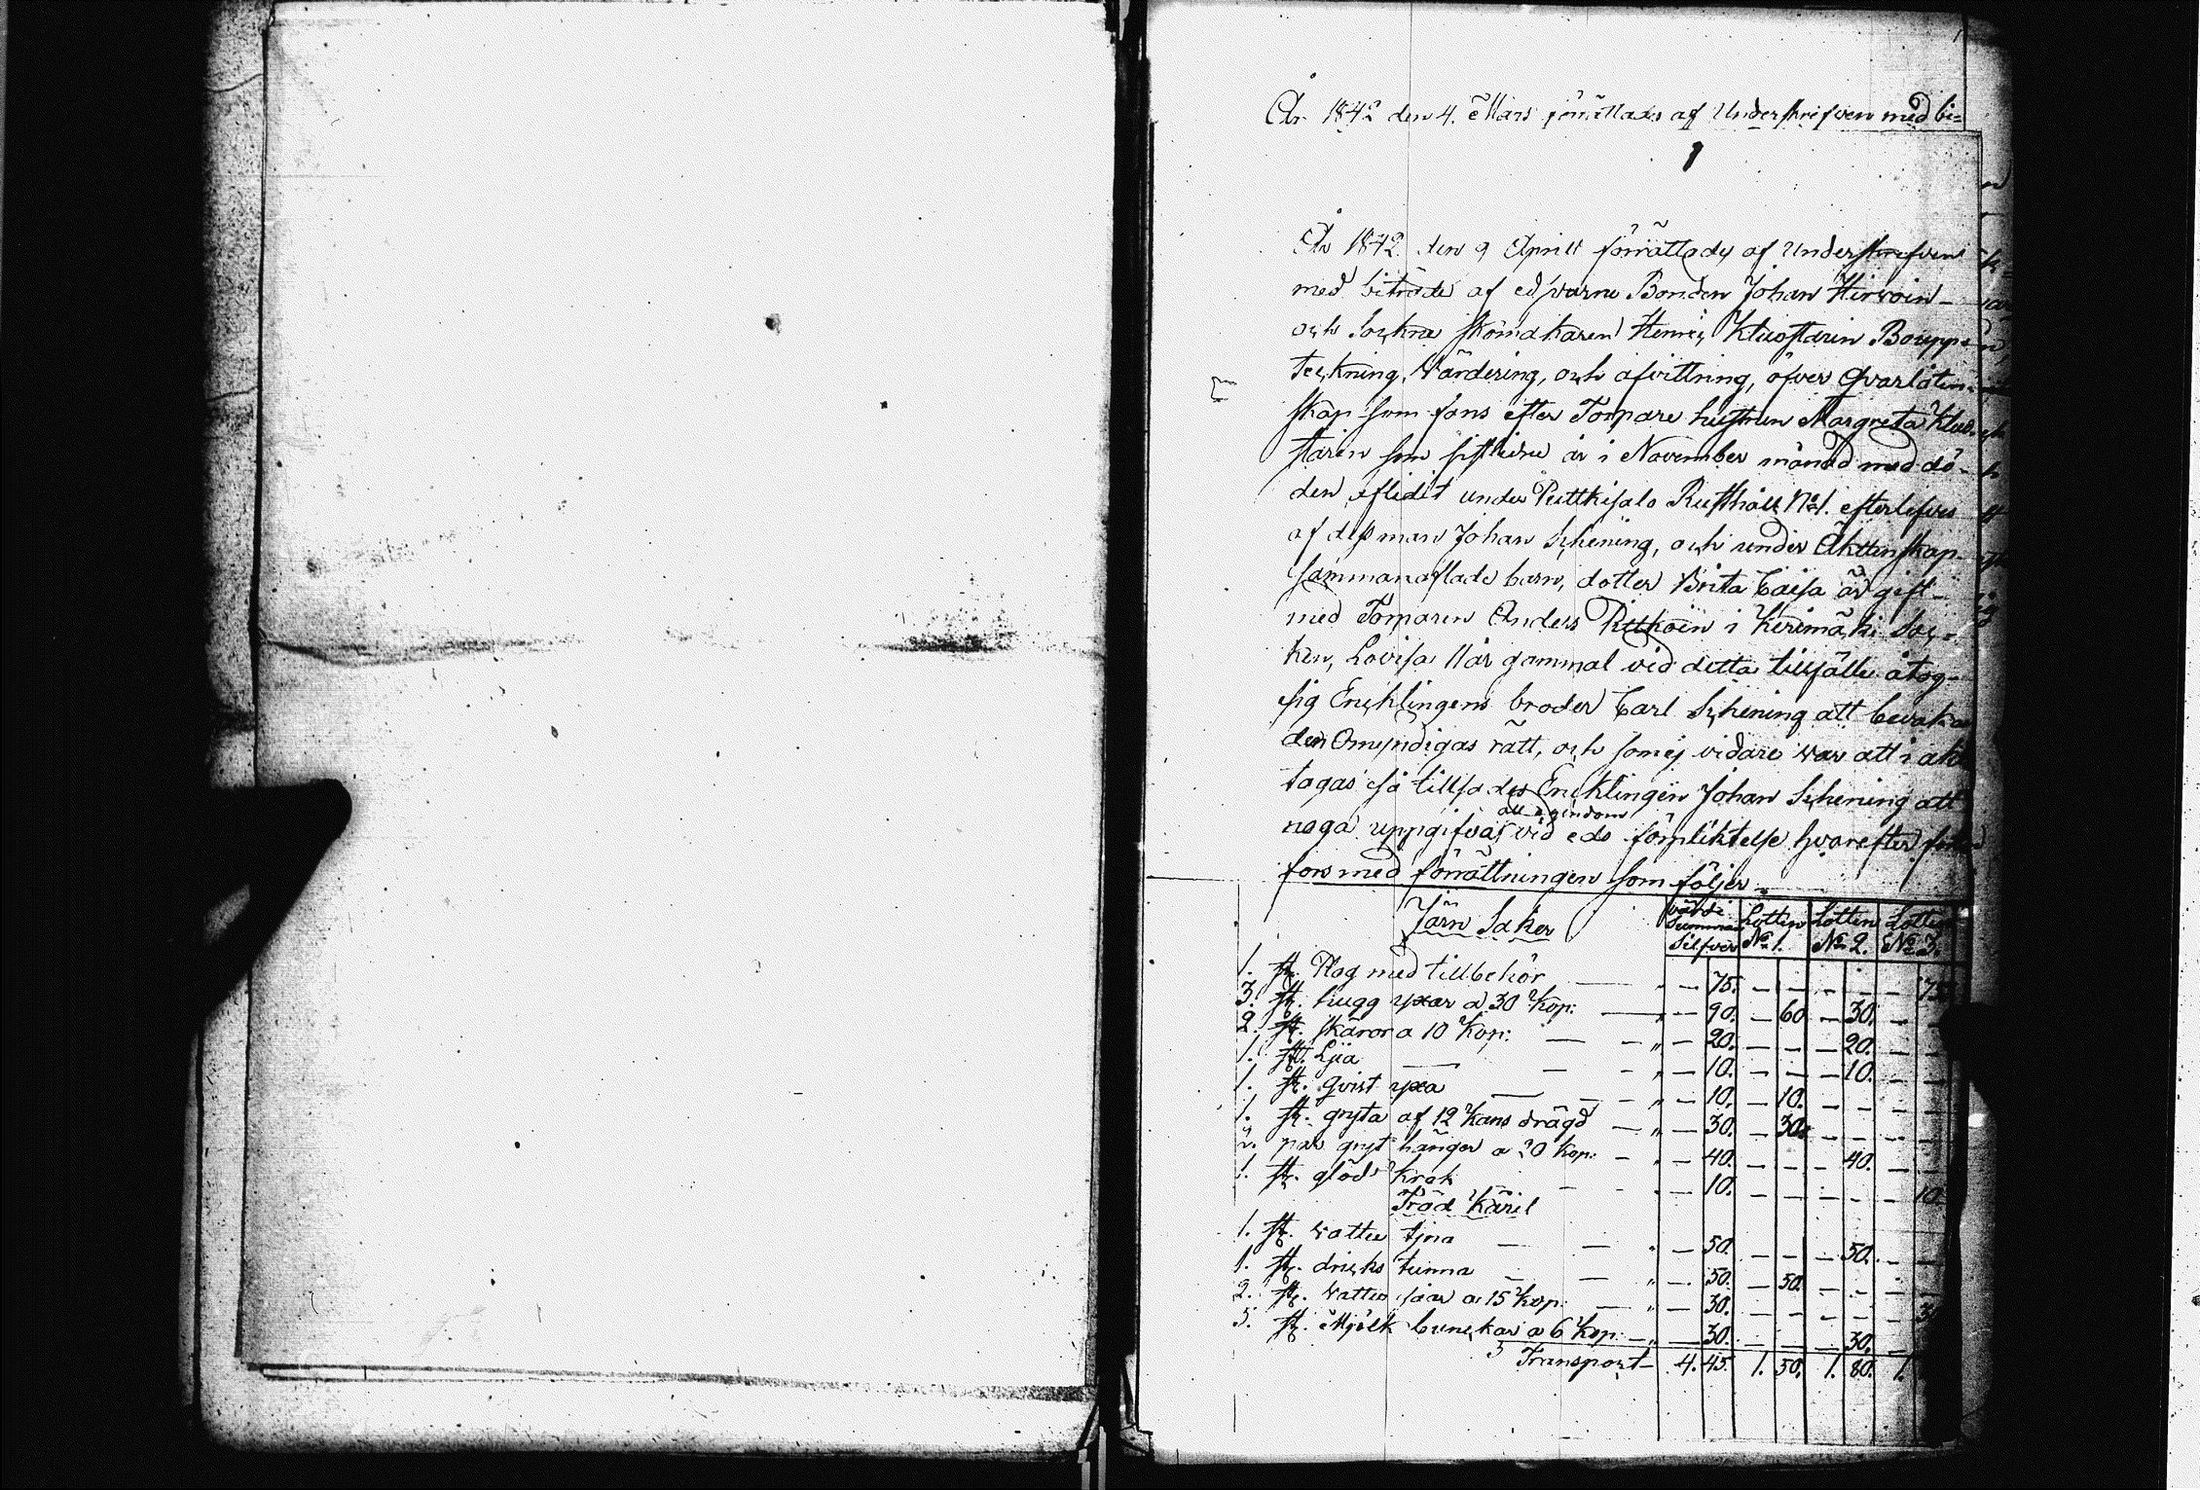 År 1842 den 4. Mars förrättades af Underskrifven med bi=
1
År 1842 den 9 Aprill förrättades af Underskrefven
med biträde af edsvurne Bonden Johan Hirvoin-
och Sockne skomakaren Kluostarin Boupp=
teckning, Värdering, och afvittring, öfver Qvarlåten-
skap som fans efter Torpare hustrun Margreta Kluo-
starin som sistledne år i November månad med dö-
den aflidit under Putkisalo Rusthåll No 1. efterlefves
af dess man Johan Schening, och under Äktenskap-
sammanaflade barn, dotter Brita Caisa är gift-
med Torparen Anders i Kerimäki Soc=
ken, Lovisa 11 år gammal vid detta tillfälle åtog-
sig Encklingens broder Carl Schening att bevaka
den Omyndigas rätt, och som ej vidare var att i akt
tagas så tillsades Encklingen Johan Schening att
all egendom
noga uppgifva vid eds förpliktelse hvarefter
fors med förrättningen som följer
Järn Saker värdi Summa Silfver Lotten No 1. Lotten No 2. Lotten No 3.
1. st. Plog med tillbehör — " — 75. — — — — — 75
3. st. hugg yxor a 30 Kop: — " — 90. — 60 — 30. — —
2. st. skäror a 10 Kop: — — " — 20. — — — 20. — —
1. st. Lia — — — " — 10. — — — 10. — —
1. st. qvist yxa — — — " — 10. — 10. — — — —
1. st. gryta af 12 Kans drägd — " — 30. — 30. — — — —
2. par gryt hänger a 20 Kop: — " — 40. — — — 40. — —
1. st. glöd krok — — " — 10. — — — — — 10
Träd Käril
1. st. vatten tjna — — " — 50. — — — 50. — —
1. st. dricks tunna — — " — 50. — 50. — — — —
2. st. vatten såar a 15 Kop: — " — 30. — — — — —
5. st. Mjölk bunckar a 6 Kop: — " — 30. — — — 30. —
Transport — 4. 45. 1. 50. 1. 80. 1.